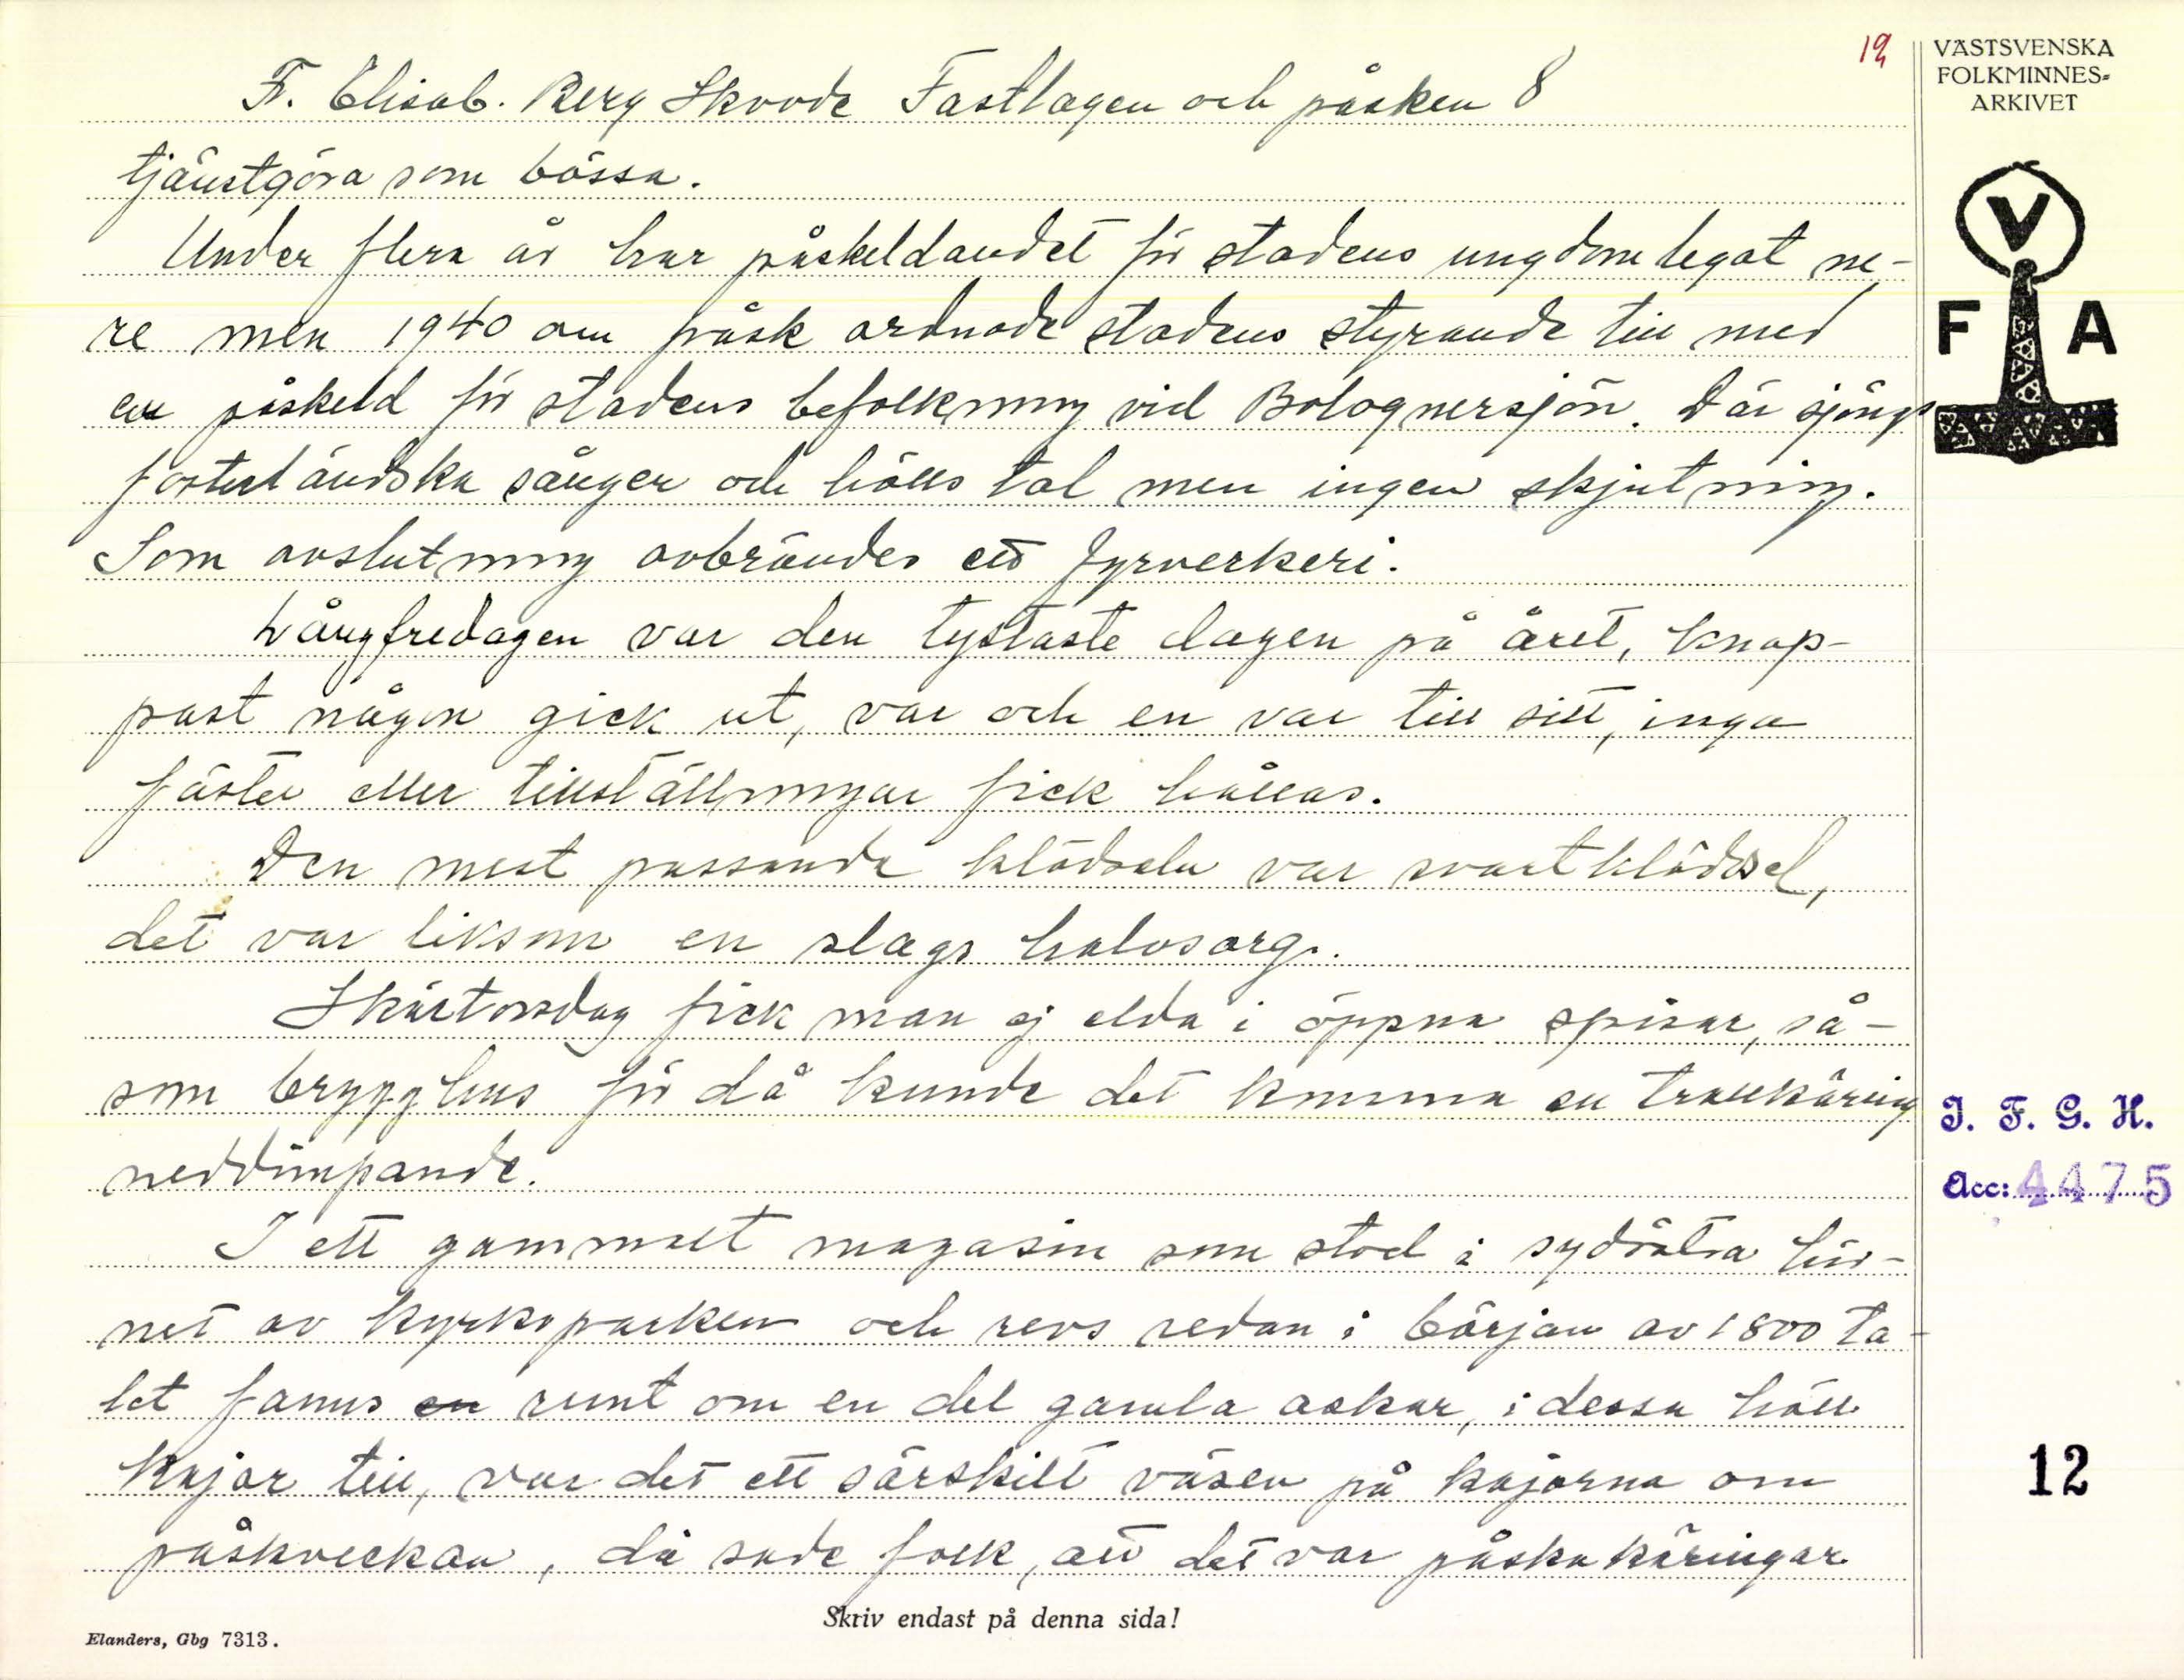 12
VÄSTSVENSKA
FOLKMINNES-
ARKIVET
F. Elisab. Berg Skövde Fastlagen och påsken 8
tjänstgöra som bössa.
Under flera år har påskeldandet för stadens ungdom legat ne-
re men 1940 om påsk ordnade stadens styrande till med
en påskeld för stadens befolkning vid Bolognersjön. Där sjöngs
fosterländska sånger och hölls tal men ingen skjutning.
Som avslutning avbrändes ett fyrverkeri.
Långfredagen var den tystaste dagen på året, knap-
past någon gick ut, var och en var till sitt, inga
fäster eller tillställningar fick hållas.
Den mest passande klädseln var svart klädsel,
det var liksom en slags halvsorg.
Skärtorsdag fick man ej elda i öppna spisar, så-
som brygghus för då kunde det komma en trollkäring
neddimpande.
I ett gammalt magasin som stod i sydöstra hör-
net av kyrkoparken och revs redan i början av 1800 ta-
let fanns en runt om en del gamla askar, i dessa höll
kajor till, var det ett särskilt väsen på kajorna om
påskveckan, då sade folk, att det var påskakäringar
V
F A
I. F. G. H.
Acc: 4475
12
Skriv endast på denna sida!
Elanders, Gbg 7313.